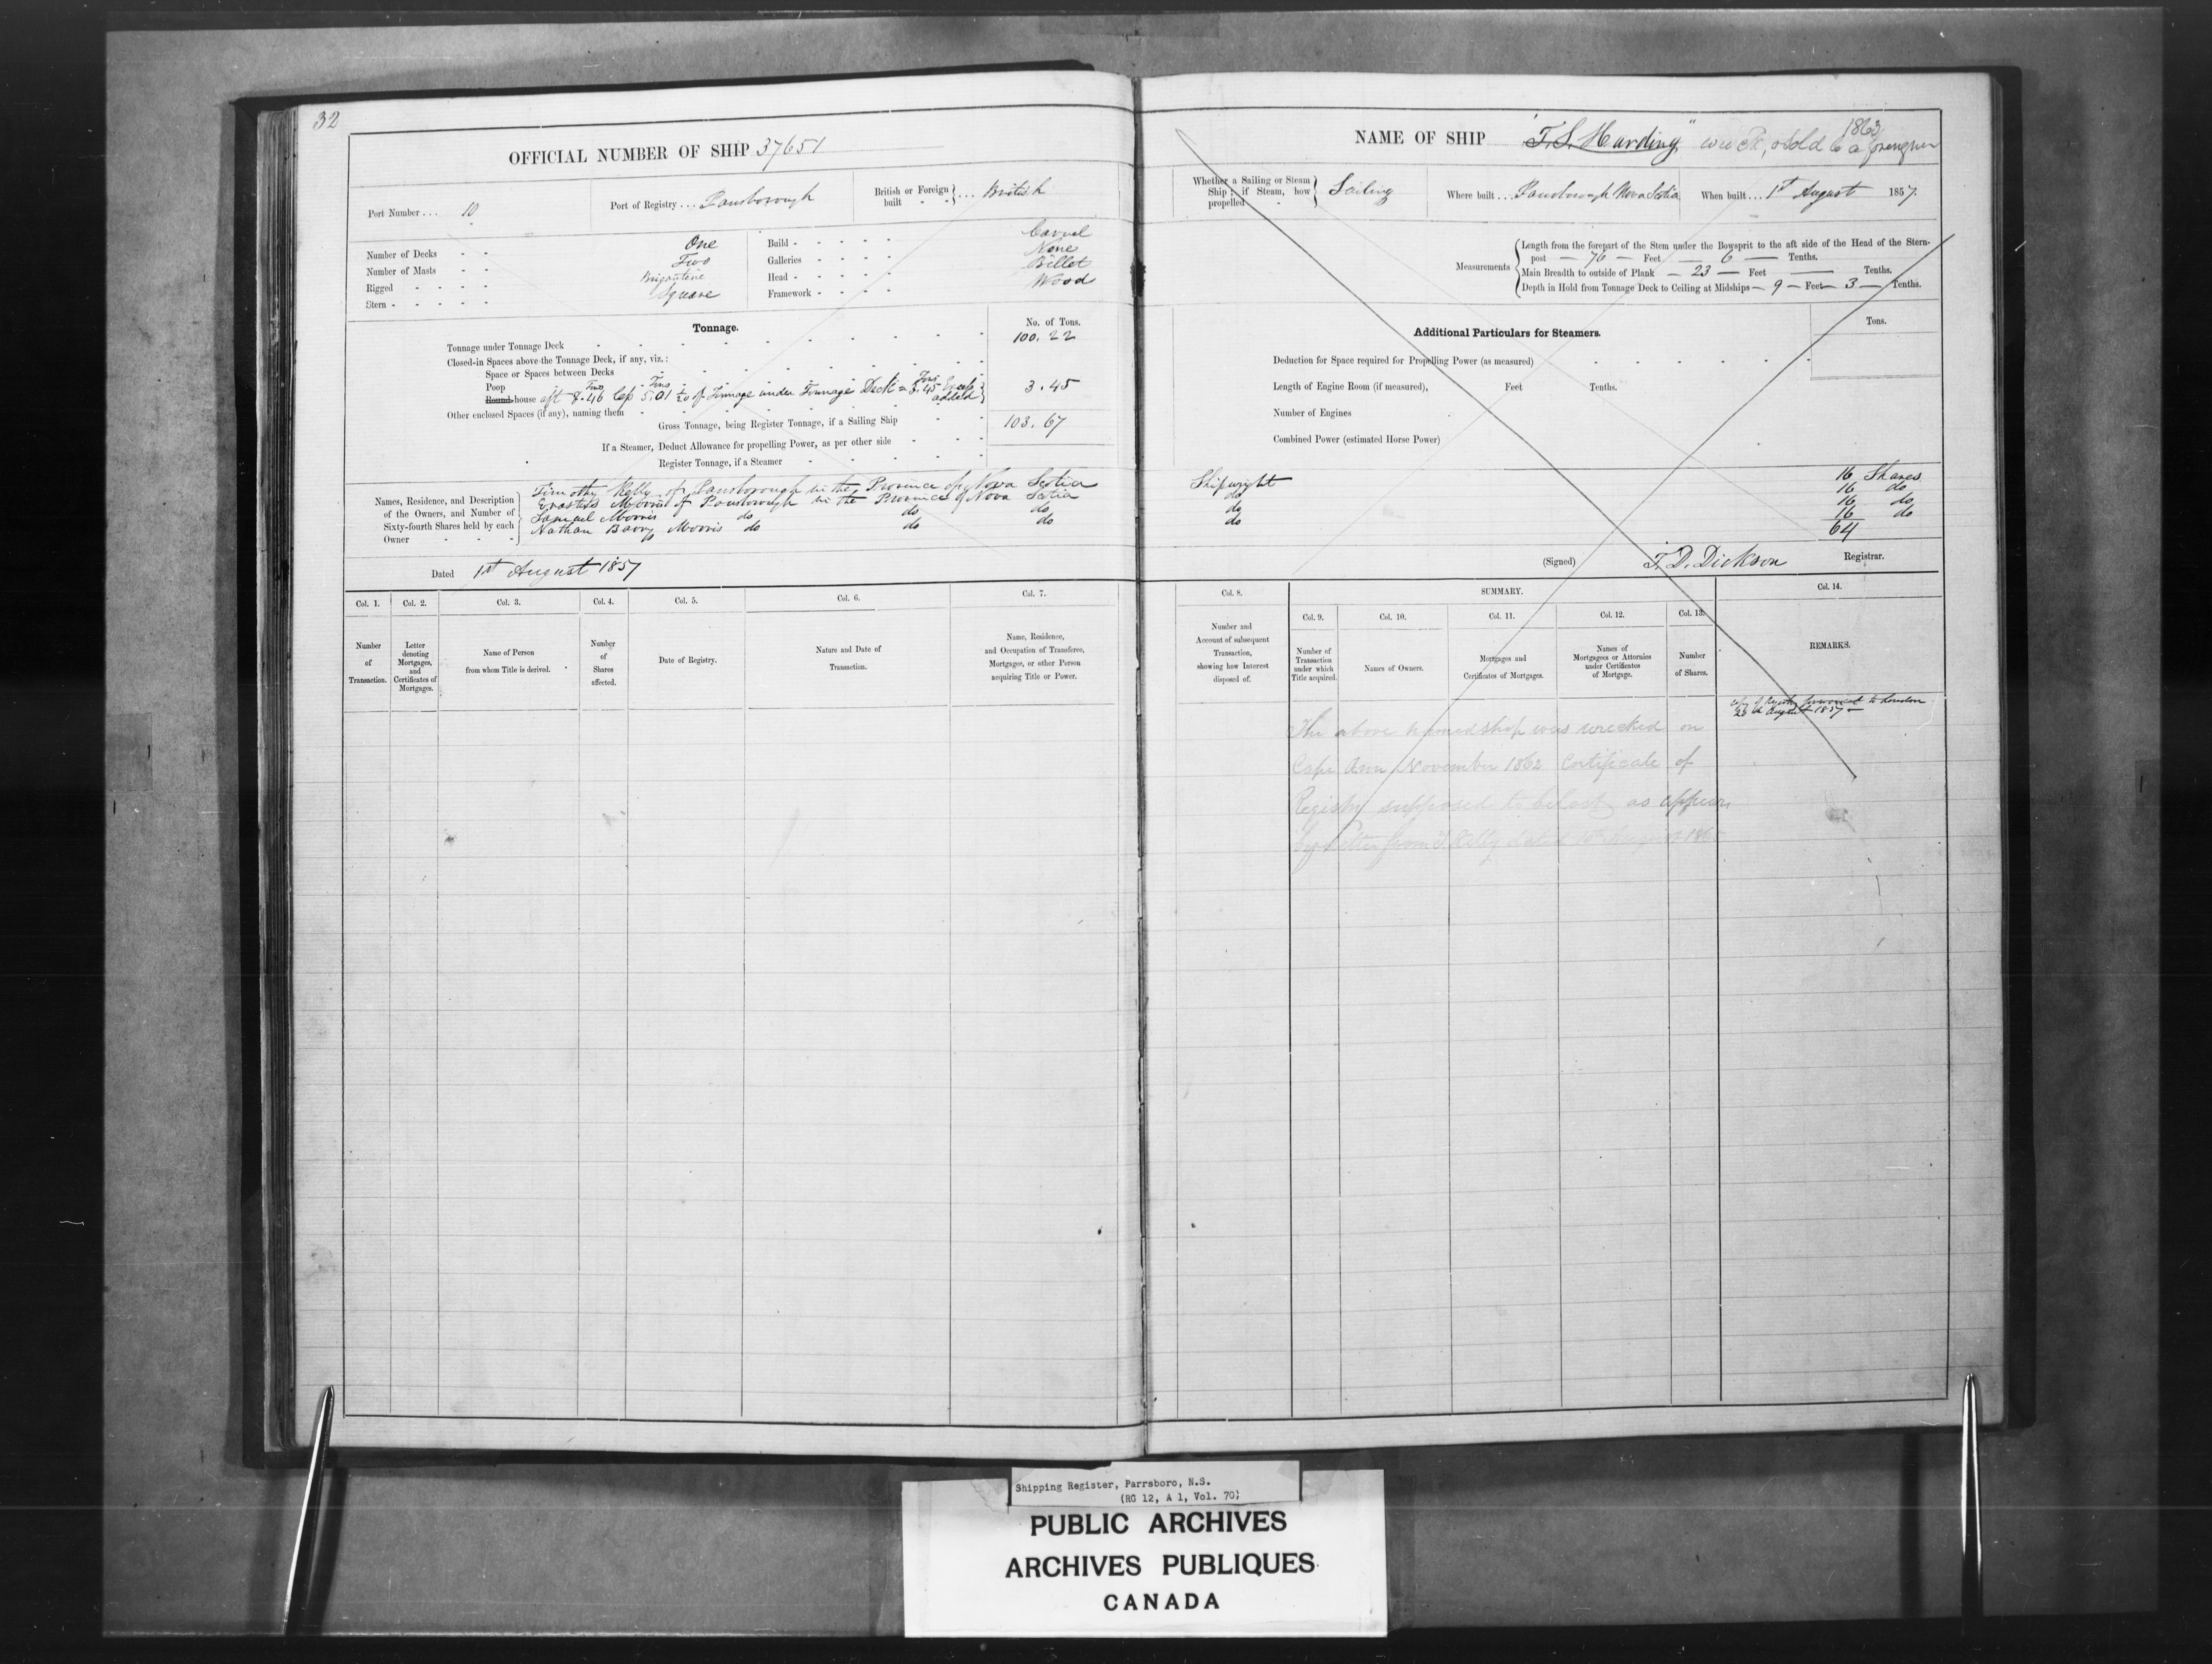 32
OFFICIAL NUMBER OF SHIP 37651
Port Number ... 10
Port of Registry ... Parrsborough
British or Foreign built } ... British
Number of Decks - - One
Number of Masts - - Two
Rigged - - - - - Brigantine
Stern - - - - - Square
Build - - - - - Carvel
Galleries - - - - None
Head - - - - - Billet
Framework - - - - Wood
Tonnage.
No. of Tons.
Tonnage under Tonnage Deck 100.22
Closed-in Spaces above the Tonnage Deck, if any, viz.:
Space or Spaces between Decks
Poop
Round-house aft 8.46 less 5.01 1/20 of Tonnage under Tonnage Deck = 3.45 Excess added } 3.45
Other enclosed Spaces (if any), naming them
Gross Tonnage, being Register Tonnage, if a Sailing Ship 103.67
If a Steamer, Deduct Allowance for propelling Power, as per other side
Register Tonnage, if a Steamer
Names, Residence, and Description of the Owners, and Number of Sixty-fourth Shares held by each Owner
Timothy Kelly of Parrsborough in the Province of Nova Scotia
Erastus Morris of Parrsborough in the Province of Nova Scotia
Samuel Morris do do do
Nathan Barry Morris do do do
Dated 1st August 1857
Col. 1. Col. 2. Col. 3. Col. 4. Col. 5. Col. 6. Col. 7.
Number of Transaction.
Letter denoting Mortgages, and Certificates of Mortgages.
Name of Person from whom Title is derived.
Number of Shares affected.
Date of Registry.
Nature and Date of Transaction.
Name, Residence, and Occupation of Transferee, Mortgagee, or other Person acquiring Title or Power.
NAME OF SHIP "T.S. Harding" wreck, & sold to a foreigner 1863
Whether a Sailing or Steam Ship; if Steam, how propelled } Sailing
Where built ... Parrsborough Nova Scotia
When built ... 1st August 1857.
Measurements
Length from the forepart of the Stem under the Bowsprit to the aft side of the Head of the Stern-
post — 76 — Feet — 6 — Tenths.
Main Breadth to outside of Plank — 23 — Feet — Tenths.
Depth in Hold from Tonnage Deck to Ceiling at Midships — 9 — Feet — 3 — Tenths.
Additional Particulars for Steamers.
Tons.
Deduction for Space required for Propelling Power (as measured)
Length of Engine Room (if measured), Feet Tenths.
Number of Engines
Combined Power (estimated Horse Power)
Shipwright 16 Shares
do 16 do
do 16 do
do 16 do
64
(Signed) T. D. Dickson Registrar.
Col. 8. SUMMARY. Col. 14.
Col. 9. Col. 10. Col. 11. Col. 12. Col. 13.
Number and Account of subsequent Transaction, showing how Interest disposed of.
Number of Transaction under which Title acquired.
Names of Owners.
Mortgages and Certificates of Mortgages.
Names of Mortgagees or Attornies under Certificates of Mortgage.
Number of Shares.
REMARKS.
Copy of Registry forwarded to London
August 1857 —
The above named ship was wrecked on
Cape Ann November 1862 Certificate of
Registry supposed to be lost as appears
by letter from T Kelly dated August
Shipping Register, Parrsboro, N.S.
(RG 12, A 1, Vol. 70)
PUBLIC ARCHIVES
ARCHIVES PUBLIQUES
CANADA